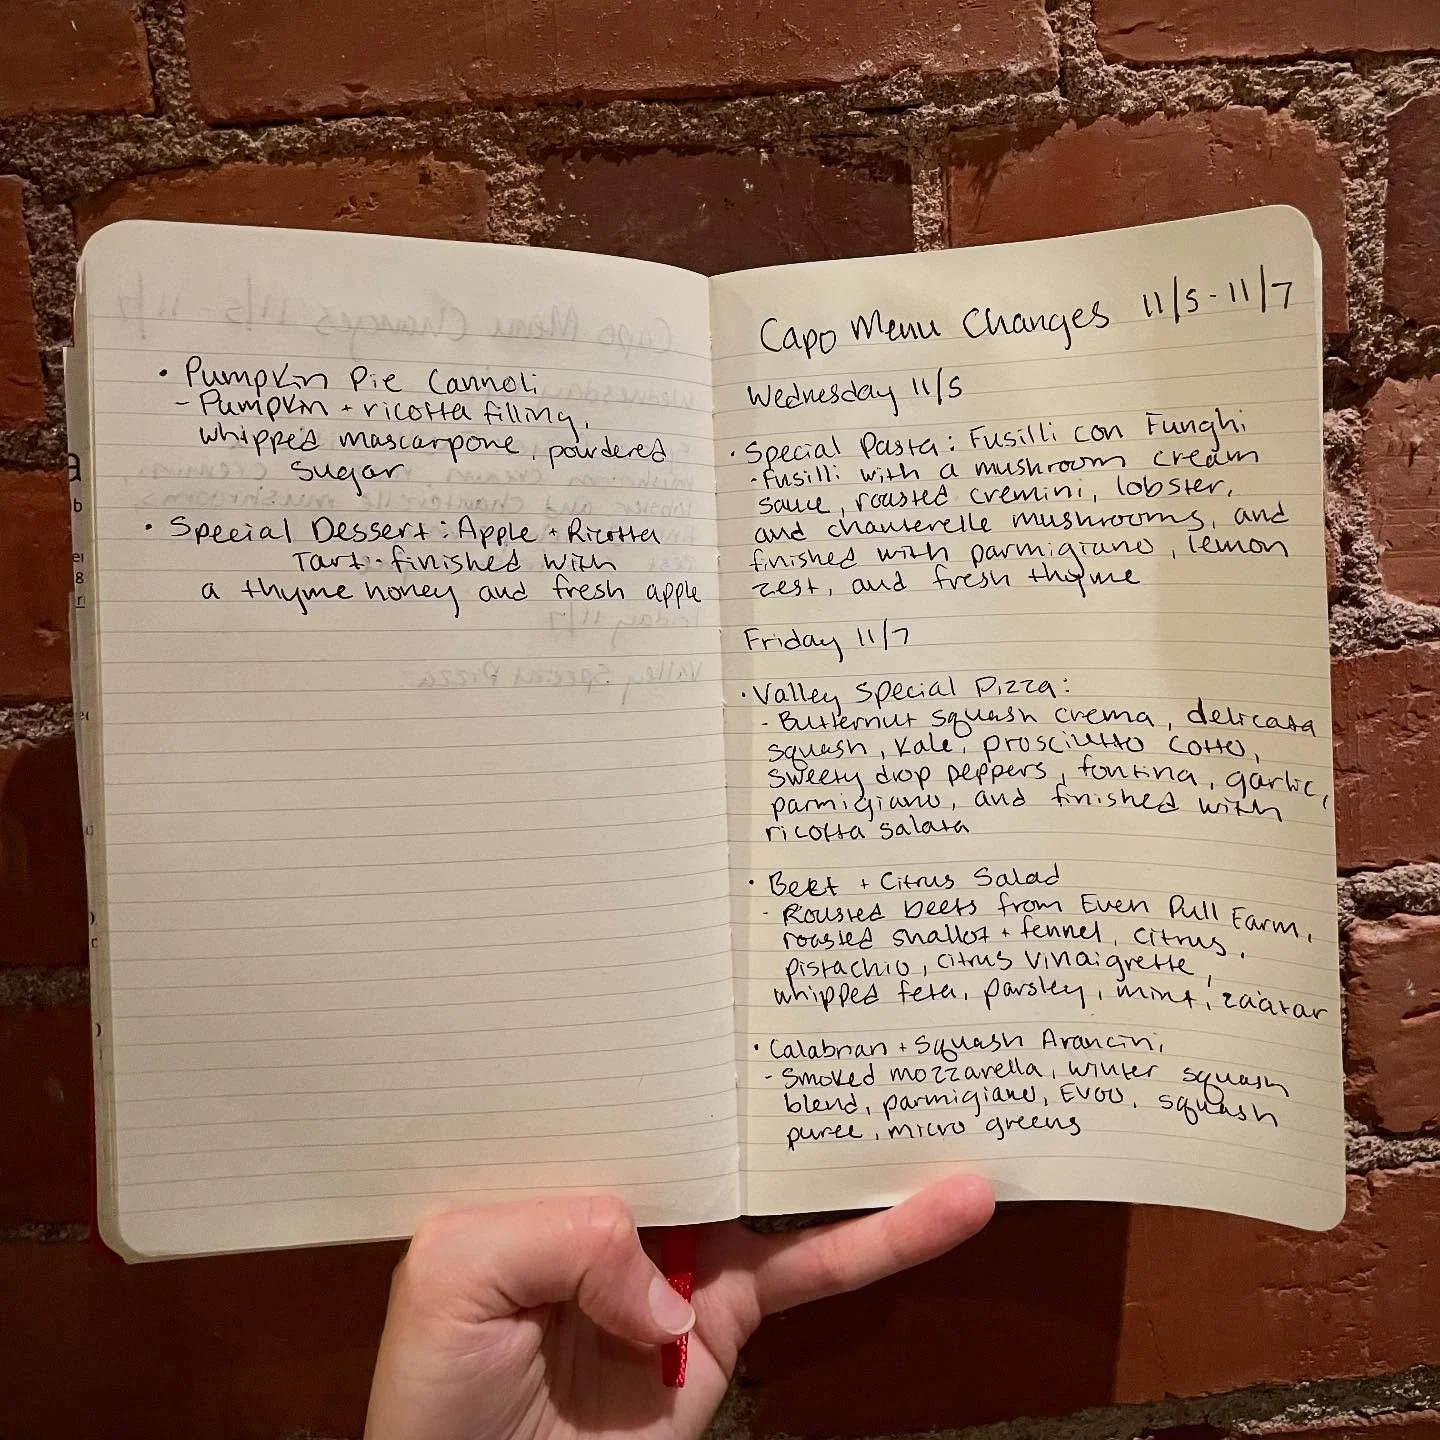 • Pumpkin Pie Cannoli
- Pumpkin + ricotta filling,
whipped mascarpone, powdered
sugar
• Special Dessert: Apple + Ricotta
Tart - finished with
a thyme honey and fresh apple
Capo Menu Changes 11/5 - 11/7
Wednesday 11/5
• Special Pasta: Fusilli con Funghi
- Fusilli with a mushroom cream
sauce, roasted cremini, lobster,
and chanterelle mushrooms, and
finished with parmigiano, lemon
zest, and fresh thyme
Friday 11/7
• Valley Special Pizza:
- Butternut squash crema, delicata
squash, kale, prosciutto cotto,
sweety drop peppers, fontina, garlic,
parmigiano, and finished with
ricotta salata
• Beet + Citrus Salad
- Roasted beets from Even Pull Farm,
roasted shallot + fennel, citrus,
pistachio, citrus vinaigrette,
whipped feta, parsley, mint, za'atar
• Calabrian + Squash Arancini,
- Smoked mozzarella, winter squash
blend, parmigiano, EVOO, squash
puree, micro greens